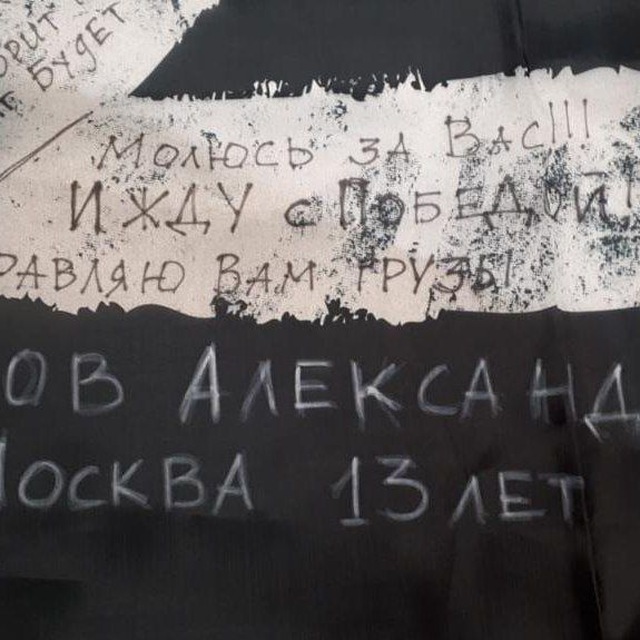 ОРИТ
БУДЕТ
МОЛЮСЬ ЗА ВАС!!!
И ЖДУ С ПОБЕДОЙ!
РАВЛЯЮ ВАМ ГРУЗЫ!
ОВ АЛЕКСАНД
МОСКВА 13 ЛЕТ